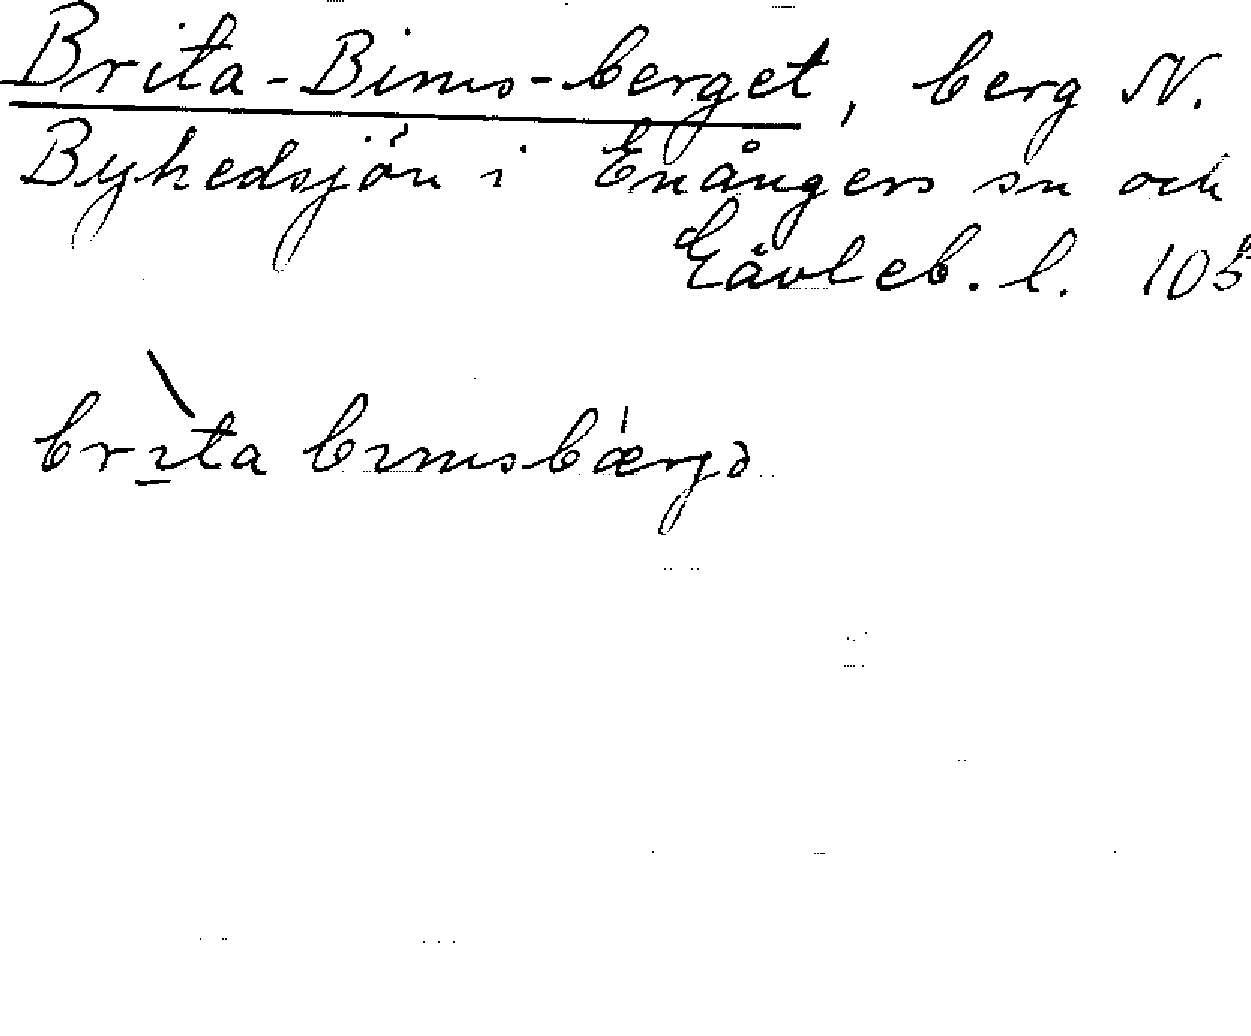 Brita-Bims-berget, berg N.
Byhedsjön i Enångers sn och
Gävleb. l. 105
brıta bımsbærgə